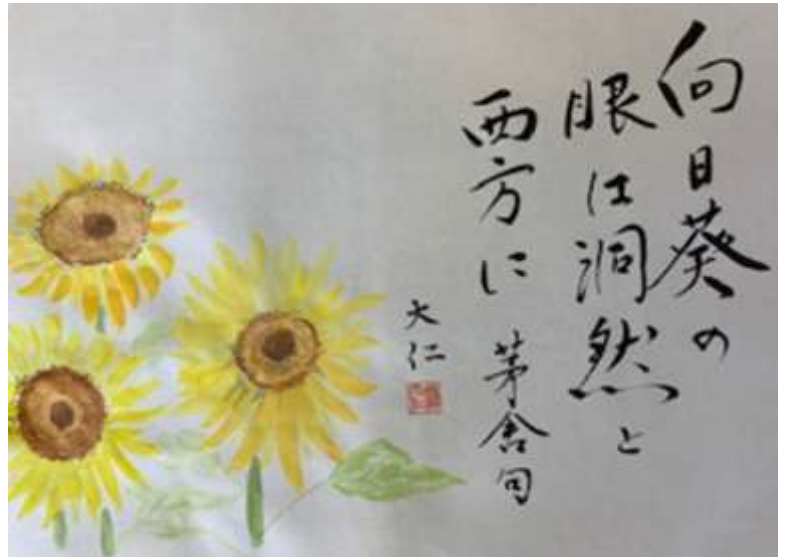 向日葵の
眼は洞然と
西方に 茅舎句
大仁